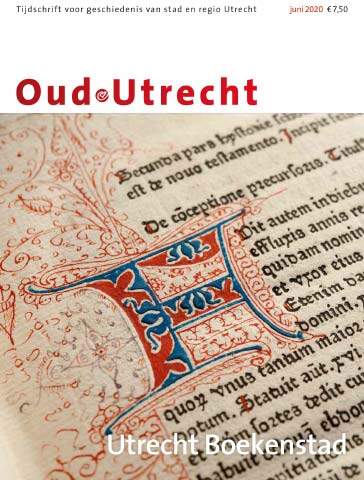 Tijdschrift voor geschiedenis van stad en regio Utrecht juni 2020 €7,50
Oud Utrecht
Secunda pars hystorie
est de nouo testamento. Incipit
De cõceptione precursoris. Titulus
Fuit autem in diebus
effluxis annis
quidam nomine
et vxor eius
Etenim
domini
quoqz vnus tantum maior
notum. Statuit aut. xvi
sortes dedit
habuit
Utrecht Boekenstad